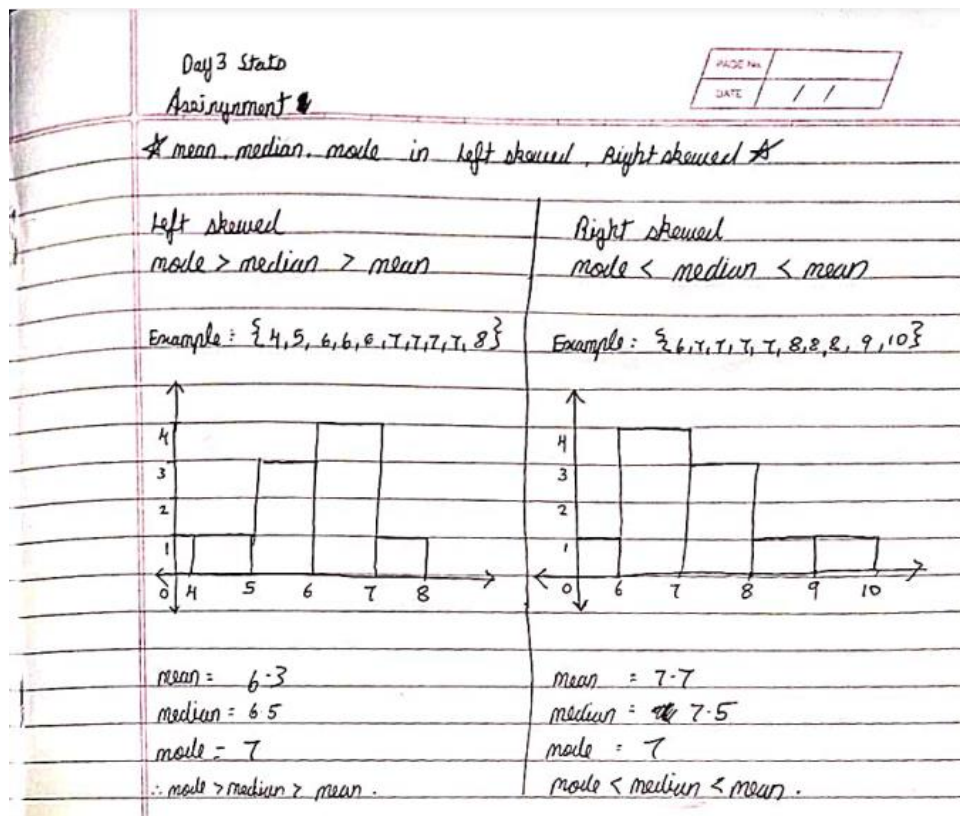 Day 3 Stats
PAGE No.
DATE / /
Assinynment
☆ mean, median, mode in Left skewed, Right skewed ☆
Left skewed
mode > median > mean
Example : {4,5, 6,6,6,7,7,7,7, 8}
4
3
2
1
0 4 5 6 7 8
mean = 6.3
median = 6.5
mode = 7
∴ mode > median > mean.
Right skewed
mode < median < mean
Example : {6,7,7,7,7, 8,8,8, 9,10}
4
3
2
1
0 6 7 8 9 10
mean = 7.7
median = 7.5
mode = 7
mode < median < mean.